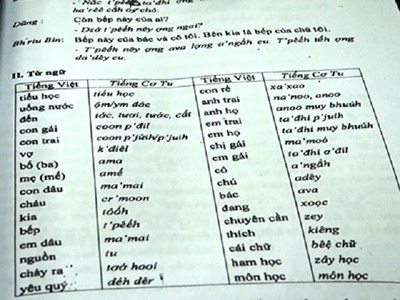 - Nắc t'pêếh ta'đhi
ha'rêê cắh ợy chô.
Dũng : Còn bếp này của ai?
- Đzơ t'pêếh nêy ợng ngai?
Bh'riu Bin: Bếp này của bác và cô tôi. Bên kia là bếp của chú tôi.
- T'pêếh nêy ợng ava lợng a'ngắh cu. T'pêếh tếh ợng
da'dêy cu.
II. Từ ngữ
Tiếng Việt Tiếng Cơ Tu Tiếng Việt Tiếng Cơ Tu
tiểu học tiểu học con rể xa'xao
uống nước ộm/ym đác anh trai na'noo, anoo
đến tóc, tươi, tước, cắt anh họ anoo muy bhuúh
con gái coon p'đil em trai ta'đhi p'juíh
con trai coon p'júih/p'juíh em họ ta'đhi muy bhuúh
vợ k'điêl chị gái ma'moó
bố (ba) ama em gái ta'đhi a'đil
mẹ (mế) amế cô a'ngắh
con dâu ma'mai chú adêy
cháu cr'moon bác ava
kia tôốh đang xoọc
bếp t'pêếh chuyên cần zey
em dâu ma'mai thích kiêng
nguồn tu cái chữ bêệ chữ
chảy ra toớ hooi ham học záy học
yêu quý déh dêr môn học môn học